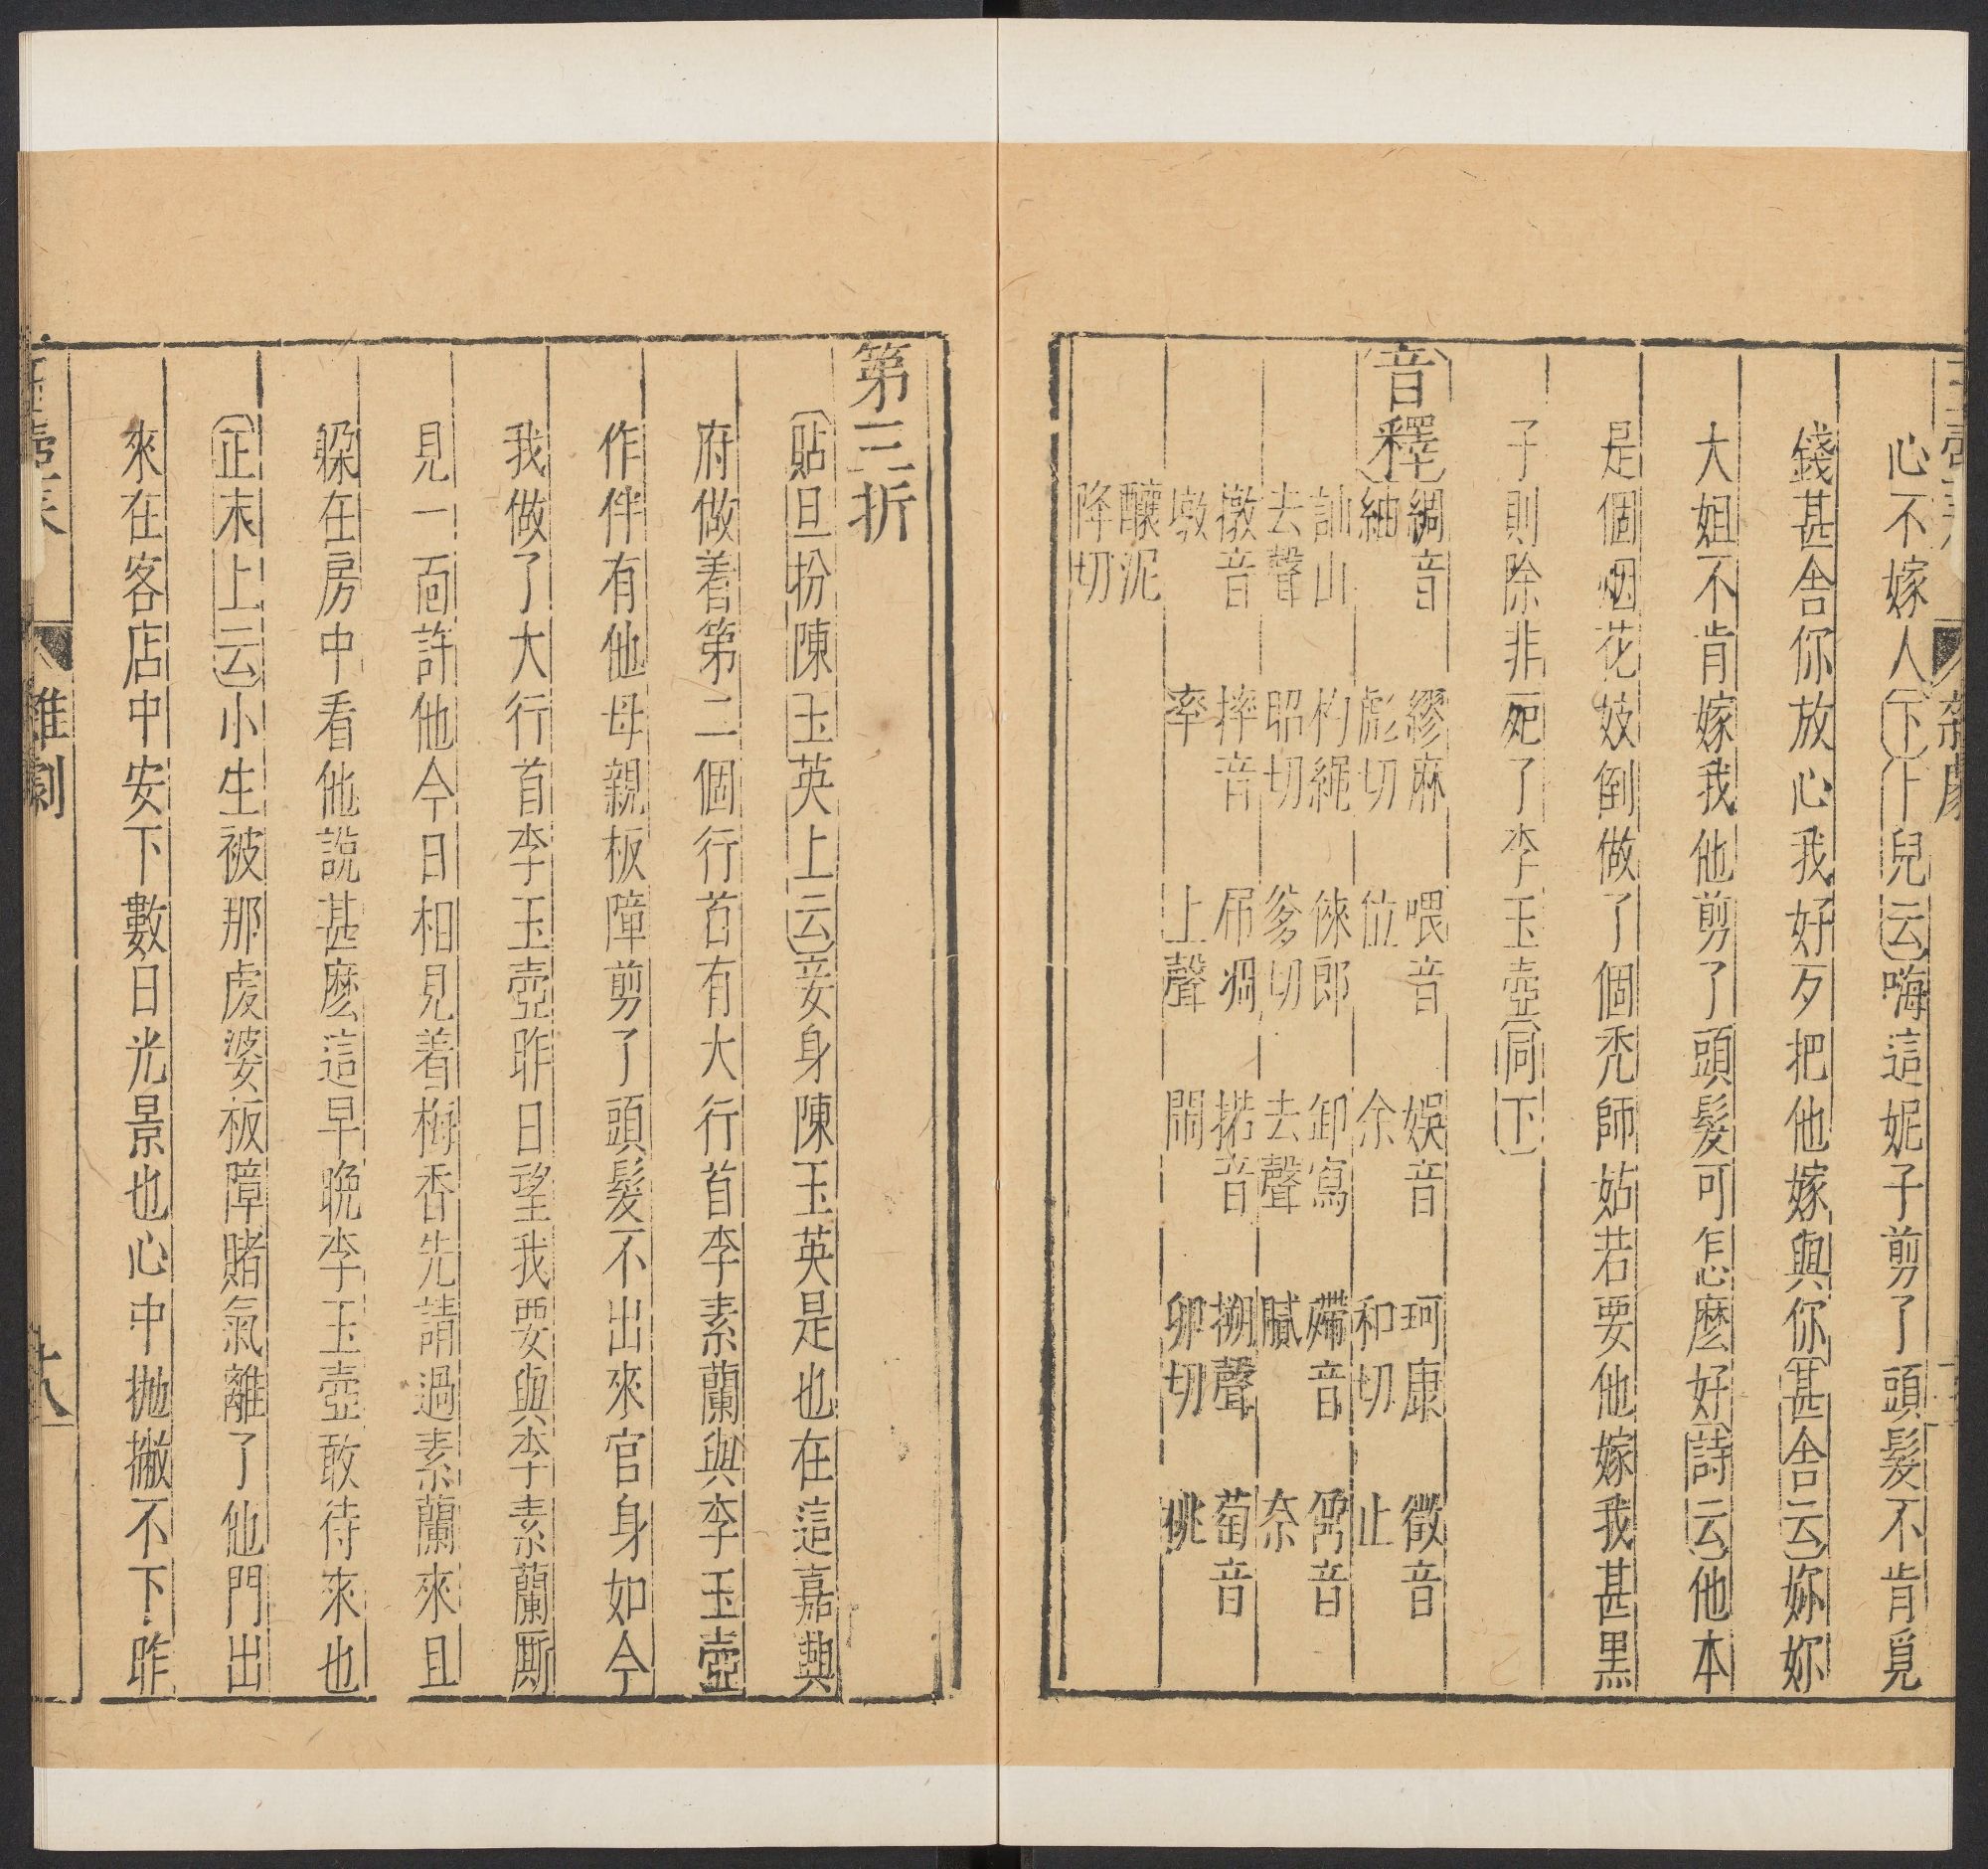 心不嫁人〔下〕〔卜兒云〕嗨這妮子剪了頭髮不肯覓
錢甚舍你放心我好歹把他嫁與你〔甚舍云〕妳妳
大姐不肯嫁我他剪了頭髮可怎麽好〔詩云〕他本
是個烟花妓倒做了個禿師姑若要他嫁我甚黑
子則除非死了李玉壺〔同下〕
音釋
綢音紬 繆麻彪切 喂音位 娛音余 珂康和切 徵音止
訕山去聲 杓繩昭切 倈郎爹切 卸寫去聲 殢音膩 奈音
撴音墩 摔音率 吊凋上聲 掿音鬧 搠聲卯切 萄音桃
釀泥降切
第三折
〔貼旦扮陳玉英上云〕妾身陳玉英是也在這嘉興
府做着第二個行首有大行首李素蘭與李玉壺
作伴有他母親板障剪了頭髮不出來官身如今
我做了大行首李玉壺昨日望我要與李素蘭厮
見一面許他今日相見着梅香先請過素蘭來且
躱在房中看他說甚麽這早晩李玉壺敢待來也
〔正末上云〕小生被那虔婆板障賭氣離了他門出
來在客店中安下數日光景也心中抛撇不下昨
雜劇
十八